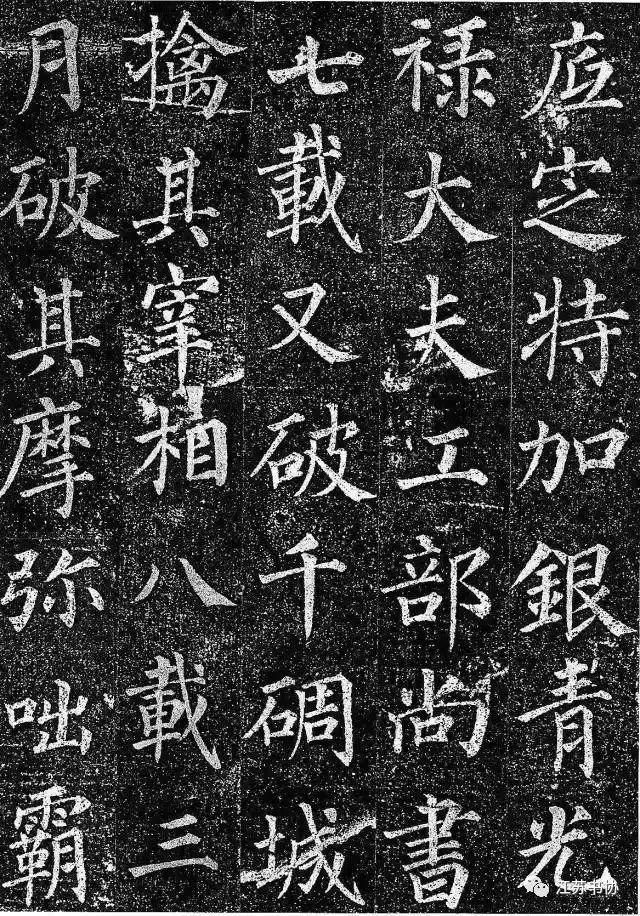 底定特加銀青光
禄大夫工部尚書
七載又破千碉城
擒其宰相八載三
月破其摩弥咄霸
江苏书协